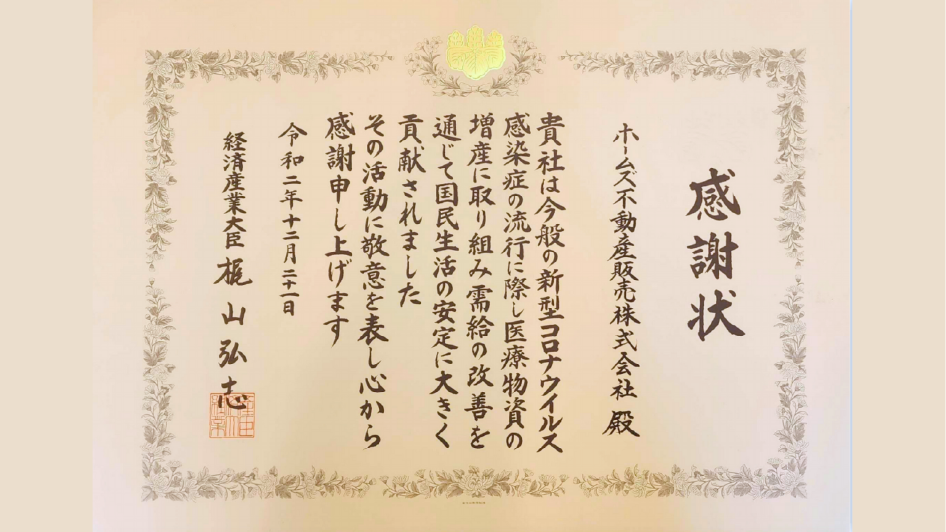 感謝状
ホームズ不動産販売株式会社 殿
貴社は今般の新型コロナウイルス
感染症の流行に際し医療物資の
増産に取り組み需給の改善を
通じて国民生活の安定に大きく
貢献されました
その活動に敬意を表し心から
感謝申し上げます
令和二年十二月二十一日
経済産業大臣 梶山弘志